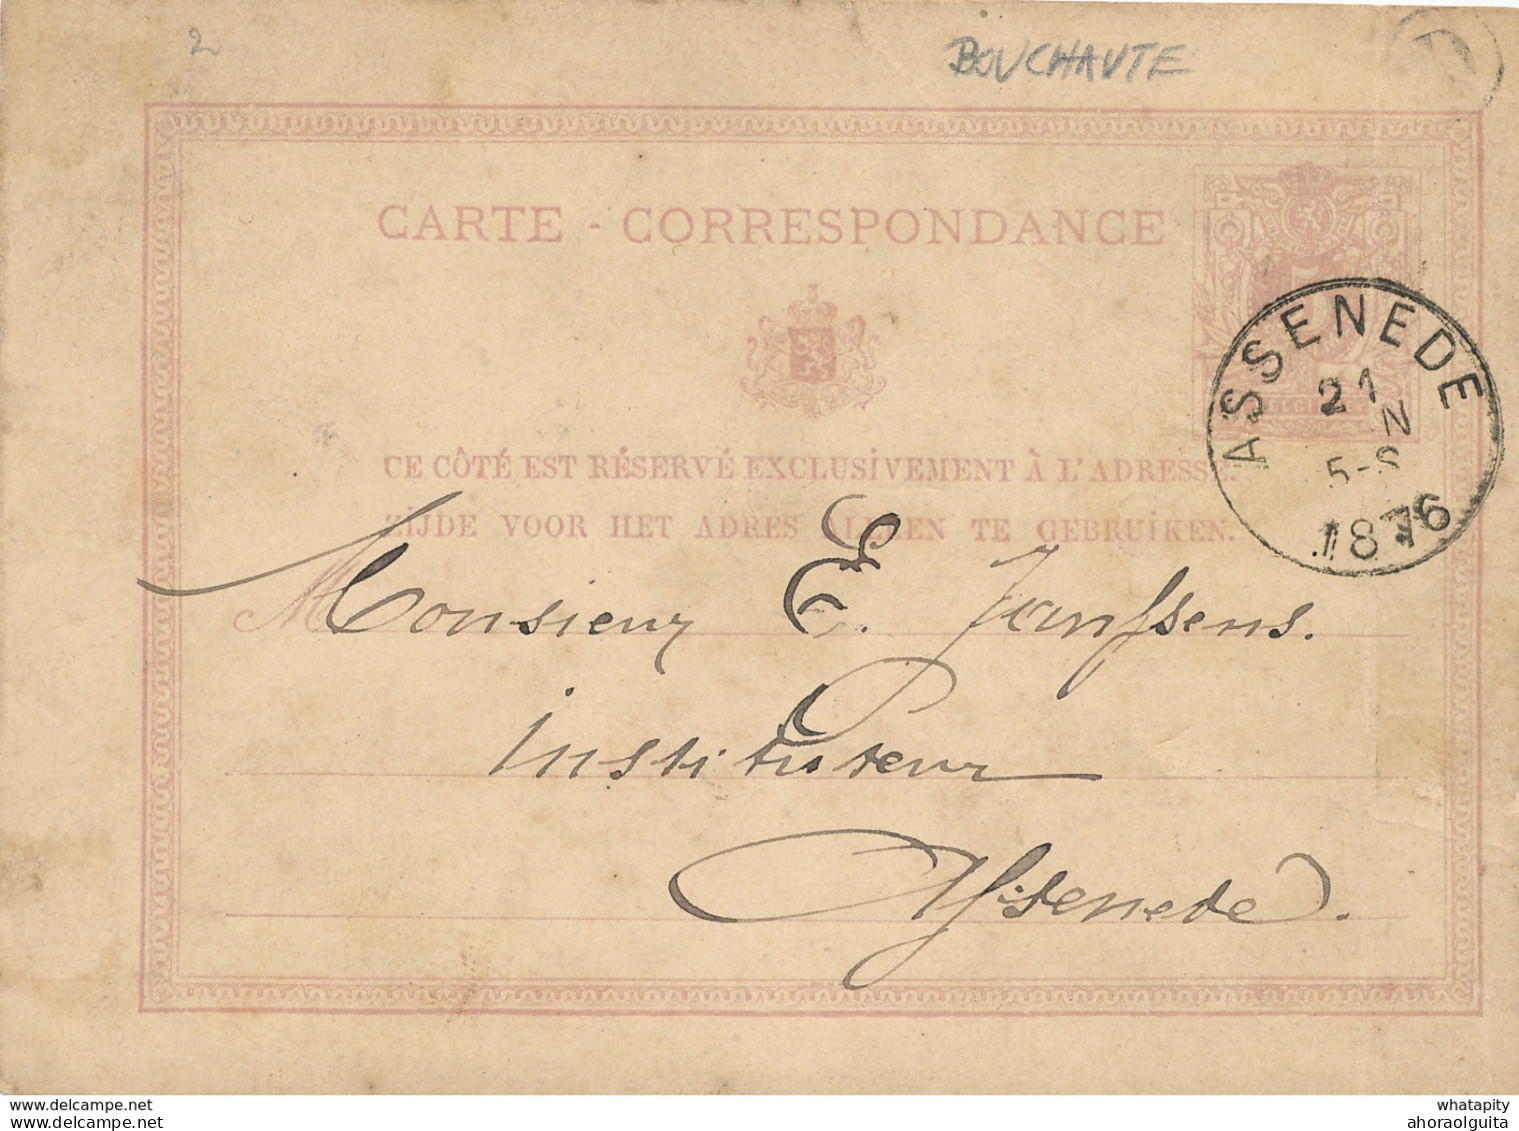 2
BOUCHAUTE
CARTE - CORRESPONDANCE
CE CÔTÉ EST RÉSERVÉ EXCLUSIVEMENT À L'ADRESSE.
ZIJDE VOOR HET ADRES ALLEEN TE GEBRUIKEN.
ASSENEDE
21
5-S
1876
Monsieur E. Janssens.
Instituteur
Assenede.
delcampe.net
whatapity
ahoraolguita